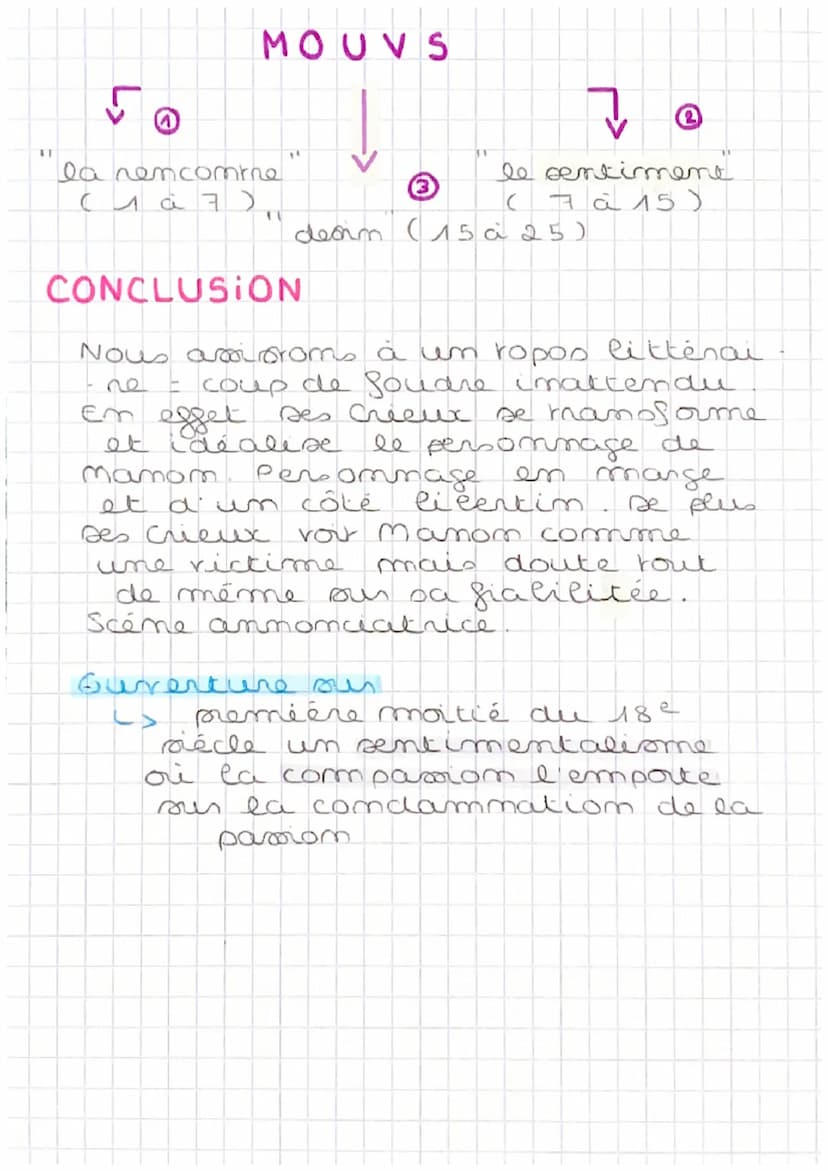 MOUVS
①
②
"la rencontre"
"le sentiment"
(1 à 7)
③
(7 à 15)
"desirn" (15 à 25)
CONCLUSiON
Nous assistons à un topos littérai-
-re = coup de foudre inattendu.
En effet Des Grieux se transforme
et idéalise le personnage de
Manon. Personnage en marge
et d'un côté libertin. De plus
Des Grieux voit Manon comme
une victime mais doute tout
de même sur sa fiabilitée.
Scéne annonciatrice.
Ouverture sur
↳ premiére moitié du 18e
siécle un sentimentalisme
où la compassion l'emporte
sur la condammation de la
passion